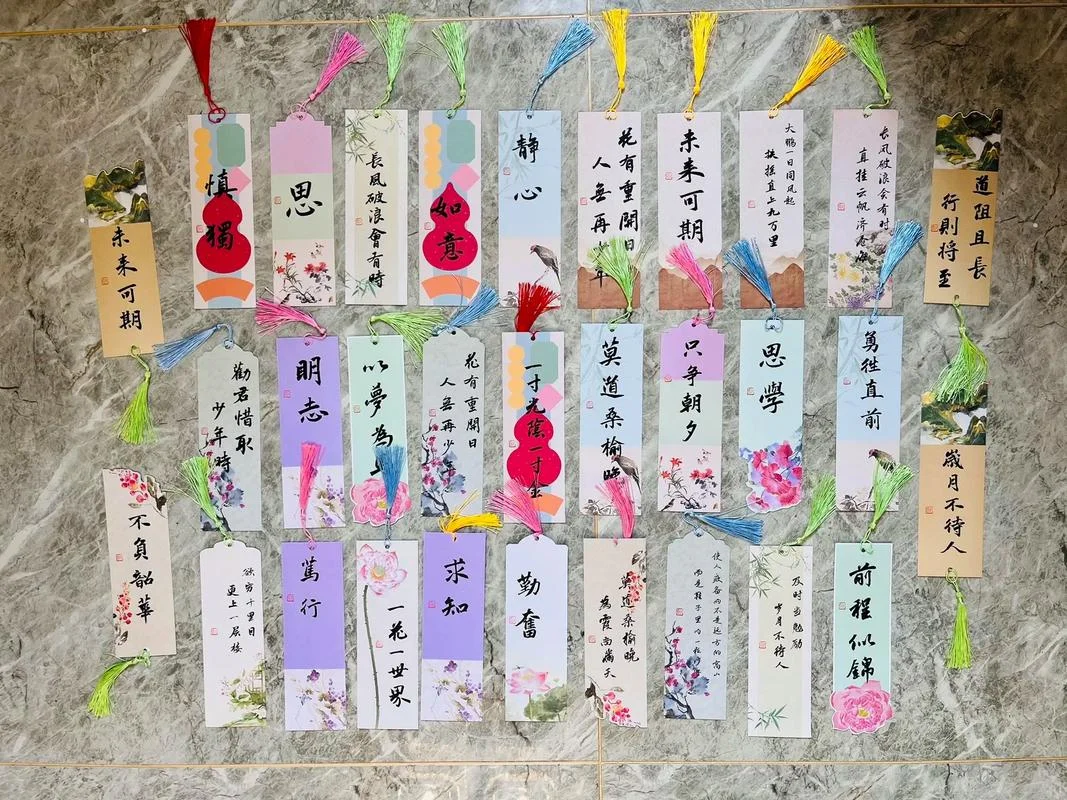 未来可期
慎獨
思
長風破浪會有時
如意
静心
花有重開日
人無再年
未来可期
大鹏一日同风起
扶摇直上九万里
长风破浪会有时
直挂云帆济沧海
道阻且長
行則将至
勸君惜取
少年時
明志
以夢為
花有重開日
人無再少年
一寸光陰一寸金
莫道桑榆晚
只争朝夕
思學
勇往直前
歲月不待人
不負韶華
欲穷千里目
更上一层楼
篤行
一花一世界
求知
勤奮
莫道桑榆晚
為霞尚滿天
使人疲惫的不是远方的高山
而是鞋子里的一粒
及时当勉励
岁月不待人
前程似錦